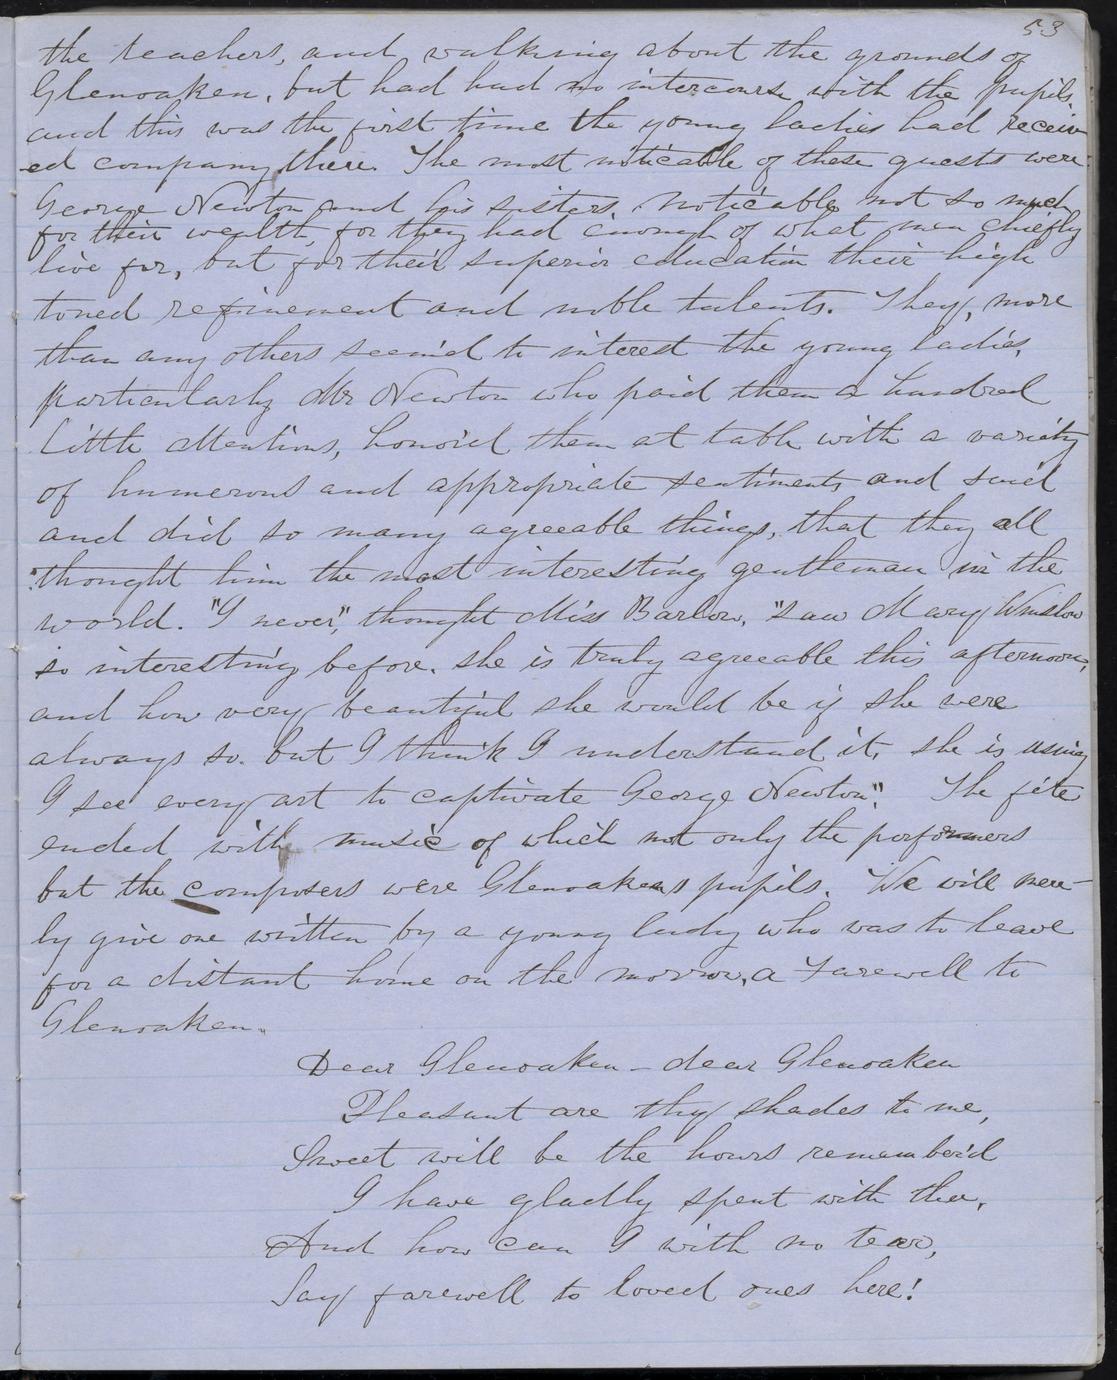 53
the teachers, and walking about the grounds of
Glenoaken, but had had no intercourse with the pupils,
and this was the first time the young ladies had receiv
-ed company there. The most noticable of these guests were
George Newton and his sisters, noticable not so much
for their wealth, for they had enough of what men chiefly
live for, but for their superior education their high
toned refinement and noble talents. They, more
than any others seem'd to interest the young ladies,
particularly Mr Newton who paid them a hundred
little attentions, honor'd them at table with a variety
of humerous and appropriate sentiments and said
and did so many agreeable things, that they all
thought him the most interesting gentleman in the
world. "I never", thought Miss Barlow, "saw Mary Winslow
so interesting before. she is truly agreeable this afternoon,
and how very beautiful she would be if she were
always so. but I think I understand it, she is using
I see every art to captivate George Newton". The fete
ended with music of which not only the performers
but the composers were Glenoakens pupils. We will mere-
ly give one written by a young lady who was to leave
for a distant home on the morrow, a Farewell to
Glenoaken.
Dear Glenoaken - dear Glenoaken
Pleasant are thy shades to me,
Sweet will be the hours remember'd
I have gladly spent with thee,
And how can I with no tear,
Say farewell to loved ones here!